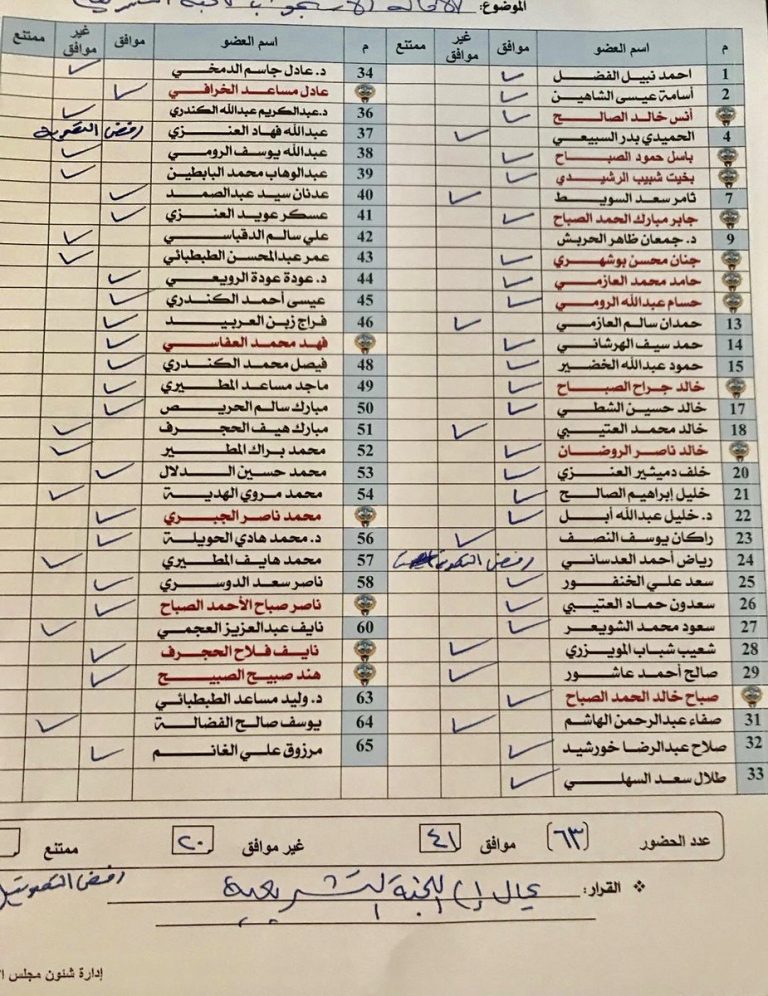 الموضوع: الإحالة
م اسم العضو موافق غير موافق ممتنع
1 احمد نبيل الفضل ✓
2 أسامة عيسى الشاهين ✓
أنس خالد الصالح ✓
4 الحميدي بدر السبيعي ✓
باسل حمود الصباح ✓
بخيت شبيب الرشيدي ✓
7 ثامر سعد السويط ✓
جابر مبارك الحمد الصباح ✓
9 د. جمعان ظاهر الحربش
جنان محسن بوشهري ✓
حامد محمد العازمي ✓
حسام عبدالله الرومي ✓
13 حمدان سالم العازمي ✓
14 حمد سيف الهرشاني ✓
15 حمود عبدالله الخضير ✓
خالد جراح الصباح ✓
17 خالد حسين الشطي ✓
18 خالد محمد العتيبي ✓
خالد ناصر الروضان ✓
20 خلف دميثير العنزي ✓
21 خليل إبراهيم الصالح ✓
22 د. خليل عبدالله أبل ✓
23 راكان يوسف النصف ✓
24 رياض أحمد العدساني رفض التصويت
25 سعد علي الخنفور ✓
26 سعدون حماد العتيبي ✓
27 سعود محمد الشويعر ✓
28 شعيب شباب المويزري ✓
29 صالح أحمد عاشور ✓
صباح خالد الحمد الصباح ✓
31 صفاء عبدالرحمن الهاشم ✓
32 صلاح عبدالرضا خورشيد ✓
33 طلال سعد السهلي ✓
م اسم العضو موافق غير موافق ممتنع
34 د. عادل جاسم الدمخي ✓
عادل مساعد الخرافي ✓
36 د.عبدالكريم عبدالله الكندري ✓
37 عبدالله فهاد العنزي رفض التصويت
38 عبدالله يوسف الرومي ✓
39 عبدالوهاب محمد البابطين ✓
40 عدنان سيد عبدالصمد ✓
41 عسكر عويد العنزي ✓
42 علي سالم الدقباسي ✓
43 عمر عبدالمحسن الطبطبائي ✓
44 د. عودة عودة الرويعي ✓
45 عيسى أحمد الكندري ✓
46 فراج زبن العربيد ✓
فهد محمد العفاسي ✓
48 فيصل محمد الكندري ✓
49 ماجد مساعد المطيري ✓
50 مبارك سالم الحريص ✓
51 مبارك هيف الحجرف ✓
52 محمد براك المطير ✓
53 محمد حسين الدلال ✓
54 محمد مروي الهدية ✓
محمد ناصر الجبري ✓
56 د. محمد هادي الحويلة ✓
57 محمد هايف المطيري ✓
58 ناصر سعد الدوسري ✓
ناصر صباح الأحمد الصباح ✓
60 نايف عبدالعزيز العجمي ✓
نايف فلاح الحجرف ✓
هند صبيح الصبيح ✓
63 د. وليد مساعد الطبطبائي
64 يوسف صالح الفضالة ✓
65 مرزوق علي الغانم ✓
عدد الحضور (٦٣) موافق ٤١ غير موافق ٢٠ ممتنع
القرار: يحال إلى اللجنة التشريعية
رفض التصويت
إدارة شئون مجلس